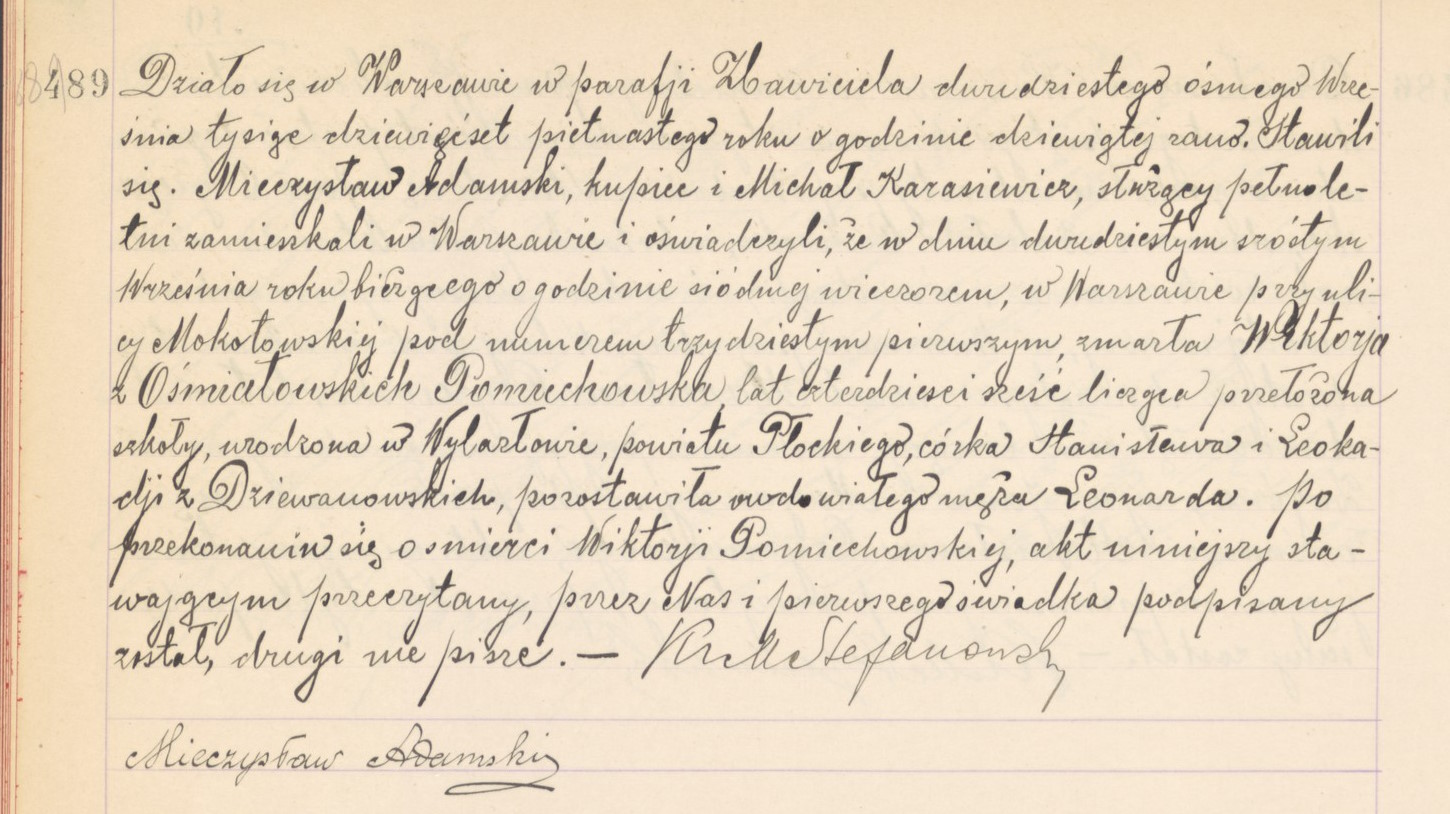 489 Działo się w Warszawie w parafji Zbawiciela dwudziestego ósmego Wrze-
śnia tysiąc dziewięćset piętnastego roku o godzinie dziewiątej rano. Stawili
się. Mieczysław Adamski, kupiec i Michał Karasiewicz, służący pełnole-
tni zamieszkali w Warszawie i oświadczyli, że w dniu dwudziestym szóstym
Września roku bieżącego o godzinie siódmej wieczorem, w Warszawie przy uli-
cy Mokotowskiej pod numerem trzydziestym pierwszym, zmarła Wiktorja
z Ośmiałowskich Pomiechowska, lat czterdzieści sześć licząca przełożona
szkoły, urodzona w Wylazłowie, powiatu Płockiego, córka Stanisława i Leoka-
dji z Dziewanowskich, pozostawiła owdowiałego męża Leonarda. Po
przekonaniu się o śmierci Wiktorji Pomiechowskiej, akt niniejszy sta-
wającym przeczytany, przez Nas i pierwszego świadka podpisany
został, drugi nie pisze. — Ks M Stefanowski
Mieczysław Adamski